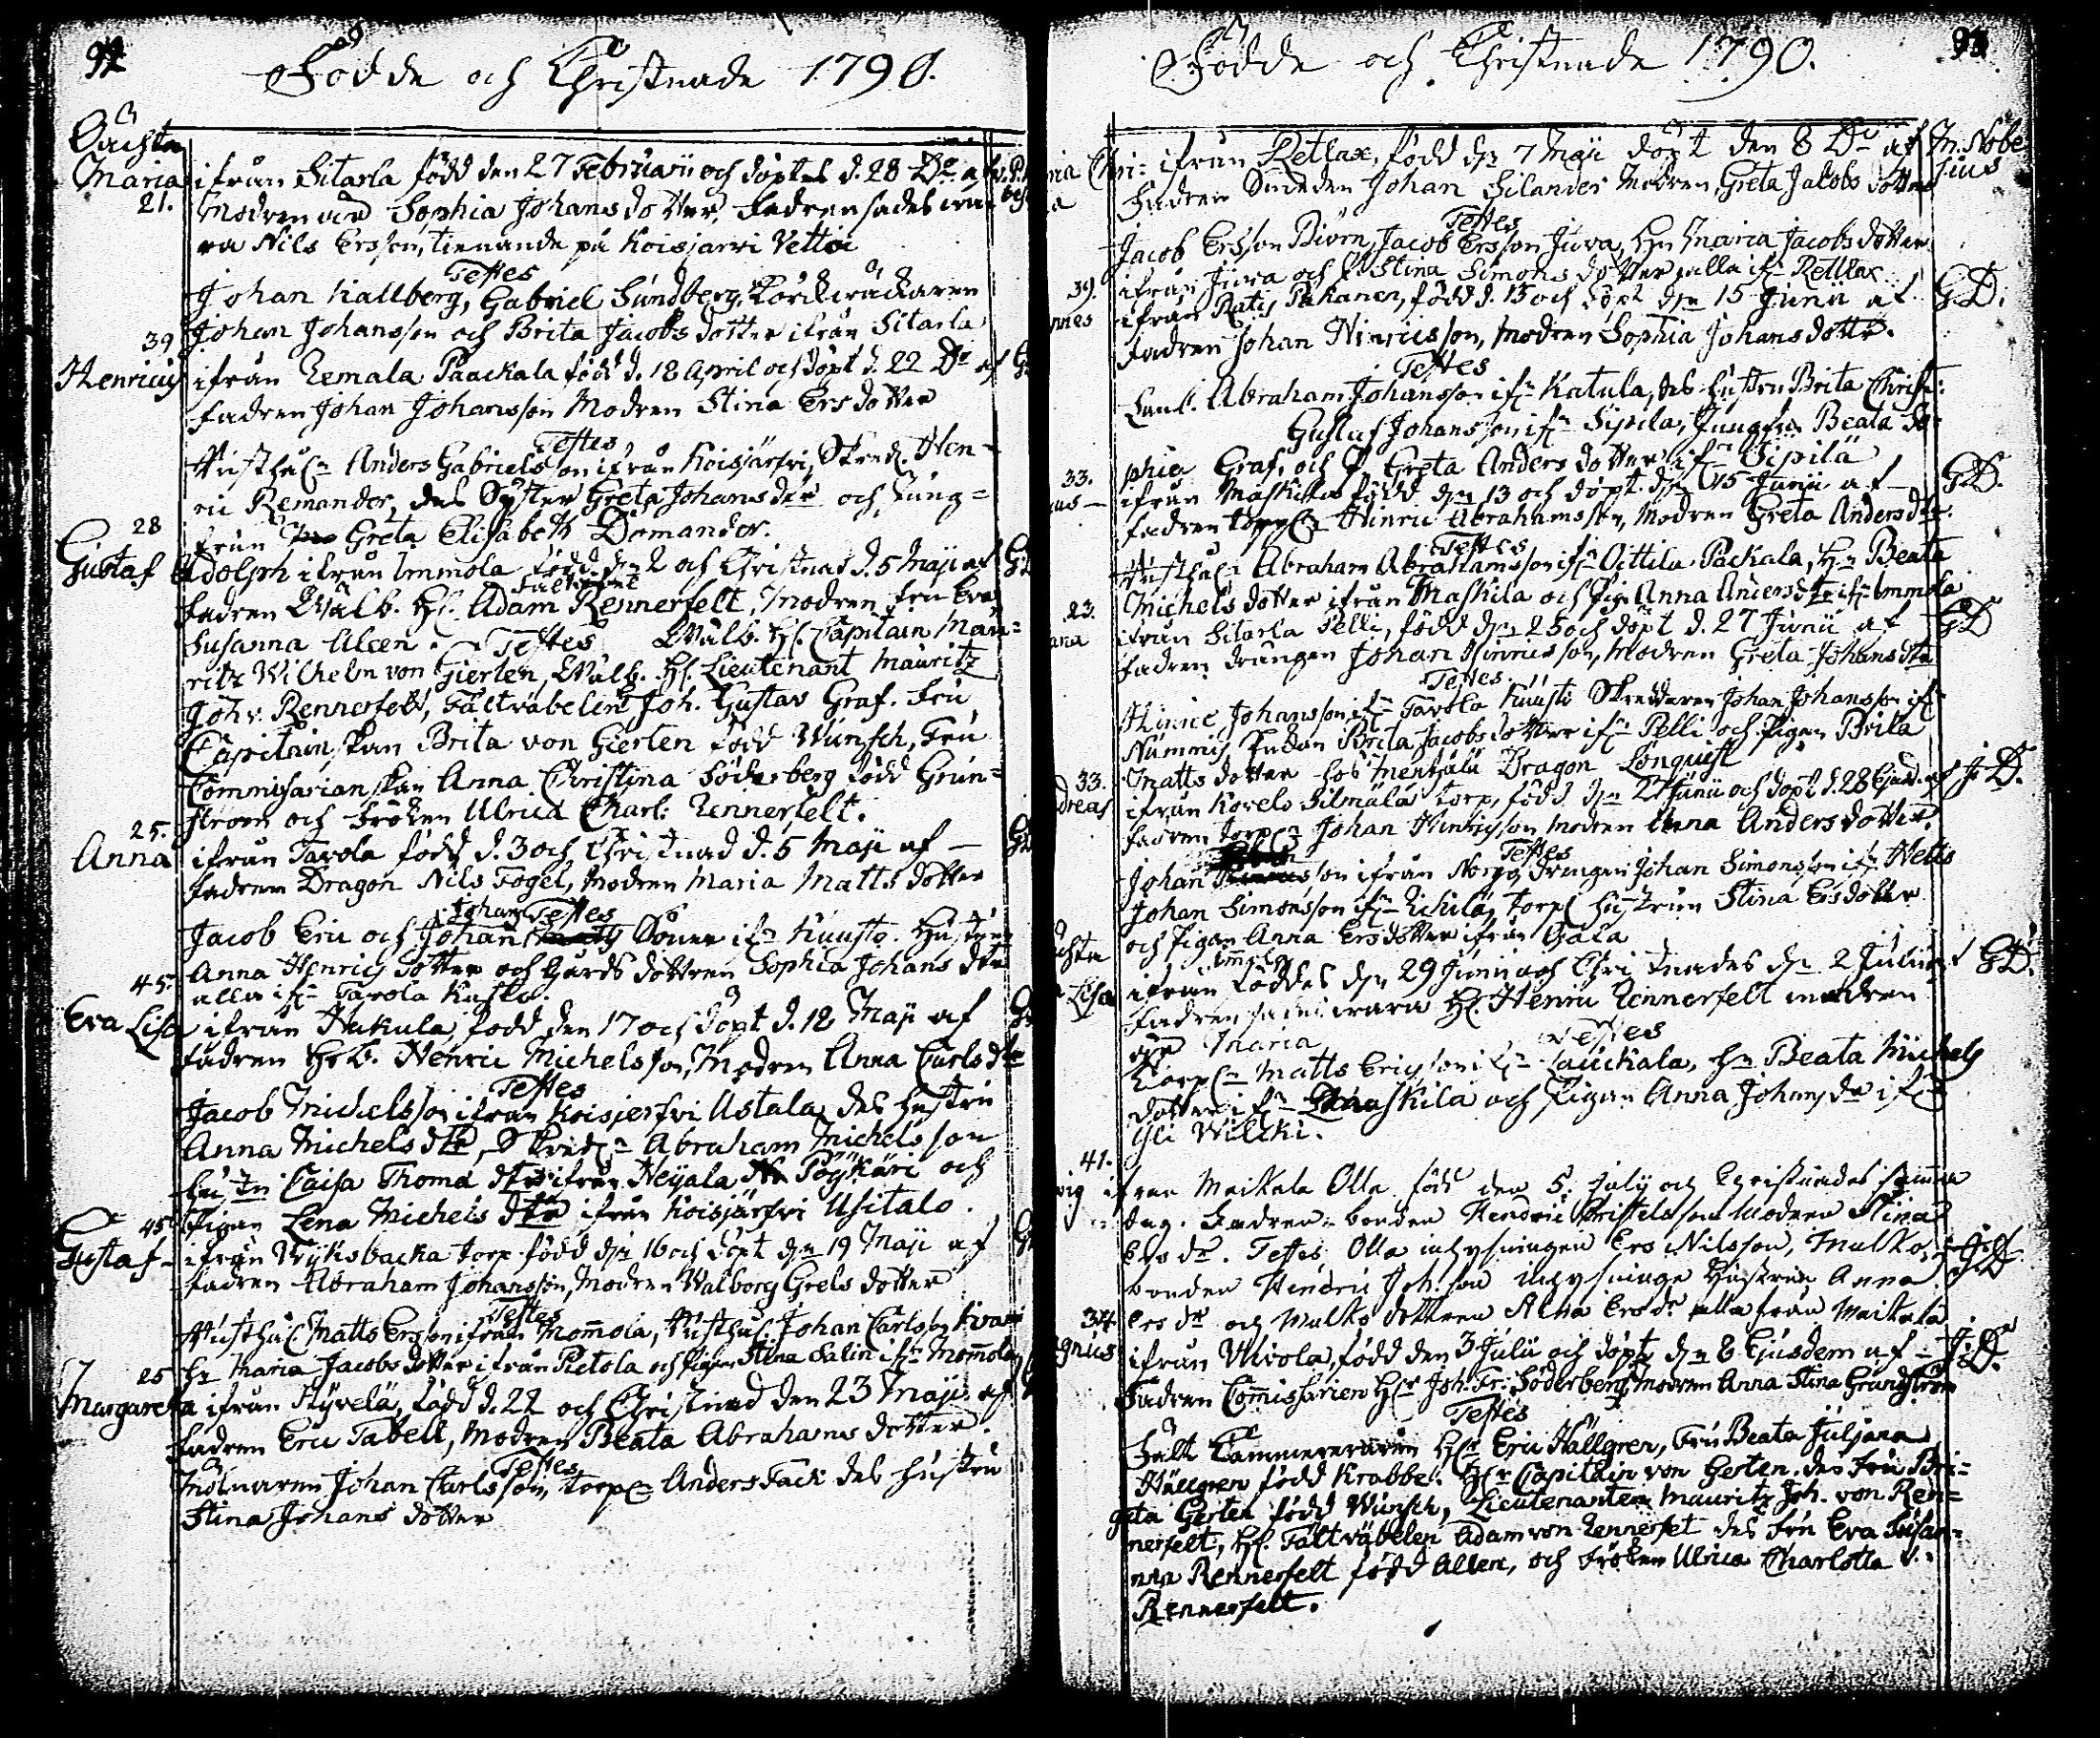 92
Födde och Christnade 1790.
Oächta
Maria ifrån Sitarla född den 27 Februarii och döptes d. 28 Do af
21. Modren är Sophia Johans dotter, Fadren sades
ra Nils Ersson, tienande på Koisjarvi Vettoi
Testes
Johan Kallberg, Gabriel Sundberg,
39 Johan Johansson och Brita Jacobs dotter ifrån Sitarla
Henricus ifrån Lemala Paackala född d. 18 April och döpt d. 22 Do af
Fadren Johan Johansson Modren Stina Ers dotter
Testes
Anders Gabrielsson ifrån Koisjärfvi, Skred. Hen-
ric Remander, des Syster Greta Johans dtr och Jung-
28 frun Greta Elisabeth Domander.
Gustaf Adolph ifrån Immola född dn 2 och Christnad d. 5 Maji af
Fadren Wälb. Hr. Adam Rennerfelt, Modren Fru Eva
Susanna Aleen. Testes Wälb. Hr. Capitain Mau-
ritz Wilhelm von Gierten, Wälb. Hr. Lieutenant Mauritz
Joh v. Rennerfelt, Fältväbelen Joh. Gustav Graf. Fru
Capitainskan Brita von Gierten född Wünsch, Fru
Commissarianskan Anna Christina Söderberg född Grun-
25. ström och Fröken Ulrica Charl: Rennerfelt.
Anna ifrån Tavola född d. 3 och Christnad d. 5 Maji af —
Fadren Dragon Nils Fogel, Modren Maria Matts dotter
Johans Testes
Jacob Eric och Johan Söner ifn Kuusto. Hustrun
45. Anna Henrics dotter och Gårds dottren Sophia Johans dtr
alla ifn Tavola Kusto.
Eva Lisa ifrån Hakula, född den 17 och döpt d. 18 Maji af
Fadren Henric Michelsson, Modren Anna Carls dtr
Testes
Jacob Michelsson ifrån Koisjerfvi Ustala, des hustru
Anna Michels dtr, Abraham Michelsson
Caisa Thomä dtr ifrån Heijala Pöykäri och
45 Pigan Lena Michels dtr ifrån Koisjärfvi Usitalo.
Gustaf — ifrån Wyksbacka torp född dn 16 och döpt dn 19 Maji af
Fadren Abraham Johansson, Modren Walborg Grels dotter
Testes
Matts Ersson ifrån Mommola, Johan Carlsson
25 Hn Maria Jacobs dotter ifrån Pietola och Pigan Stina Salin ifn Mommola
Margareta ifrån Hyvelä, född d. 22 och Christnad den 23 Maji af
Fadren Eric Tabell, Modren Beata Abrahams dotter.
Testes
Mölnaren Johan Carlsson, torp. Anders Fack des hustru
Stina Johans dotter
93
Födde och Christnade 1790.
ifrån Retlax, född dn 7 Maji döpt den 8 Do af M. Nobe
Fadren Smeden Johan Silander Modren Greta Jacobs dotter lius
Testes
Jacob Ersson Biörn, Jacob Ersson Juva, Hn Maria Jacobs dotter
39. ifrån Juva och P. Stina Simons dotter alla ifn Retlax
ifrån Ratis Pakanen, född d. 13 och döpt dn 15 Junii af GD.
Fadren Johan Hinricsson, Modren Sophia Johans dotter.
Testes
Abraham Johansson ifn Katula, des hustru Brita Christ:
Gustaf Johansson ifn Sipila, Jungfru Beata So-
33. phia Graf, och P. Greta Anders dotter ifn Sipilä
ifrån Maskila född dn 13 och döpt dn 15 Junii af GD.
Fadren Hinric Abrahamsson, Modren Greta Anders dtr.
Testes
Abraham Abrahamsson ifn Oittila Packala, Hn Beata
23. Michels dotter ifrån Maskila och Pig. Anna Anders dtr ifn Immola
ifrån Sitarla Pelli, född dn 25 och döpt d. 27 Junii af GD
Fadren drängen Johan Hinricsson, Modren Greta Johans dtr
Testes.
Hinric Johansson ifn Tavola Kuusto Skreddaren Johan Johansson ifn
Nummis, Brita Jacobs dotter ifn Pelli och Pigan Brita
33. Matts dotter hos Mentjälä Dragon Lönquist
dreas ifrån Kovelo Silmälas torp, född dn Junii och döpt d. 28 Ejusd. af GD.
Fadren Johan Hinricsson Modren Anna Anders dotter.
Testes
Johan son ifrån Norrg. Drengen Johan Simonsson ifn
Johan Simonsson ifn torp. hustrun Stina Ersdotter
och Pigan Anna Ersdotter ifrån
Lisa ifrån Immola föddes dn 29 Junii och Christnades dn 2 Julii af GD.
Fadren Hr. Henric Rennerfelt modren
är Maria Testes
Matts Ericsson ifn Hn Beata Michels
dotter ifn Maskila och Pigan Anna Johans dr ifn
Wilcki.
41.
ifrån Maikala Olla född den 5. July och Christnades samma
dag. Fadren bonden Hendric Modren Stina
Ers dr. Testes Olla inhysningen Ers Nilsson, Mulko GD
bonden Hendric Joh.son inhysninge hustrun Anna
34. Ers dr och Mulko dottren Ers dr alla från Maikala
gnus ifrån Uivola, född den 3 Julii och döpt dn 8 Ejusdem af — GD.
Fadren Commissarien Hr Joh. Fr: Söderberg Modren Anna Stina Grundström
Testes
Fält Cammereraren Hr Eric Hällgren, Fru Beata Juljana
Hällgren född Krabbe. Hr Capitain von Gerten, des Fru Bri-
gita Gerten född Wünsch, Lieutenanten Mauritz Joh. von Ren-
nerfelt, Hr. Fältväbelen Adam von Rennerfelt des Fru Eva Susan-
na Rennerfelt född Alleen, och Fröken Ulrica Charlotta v.
Rennerfelt.